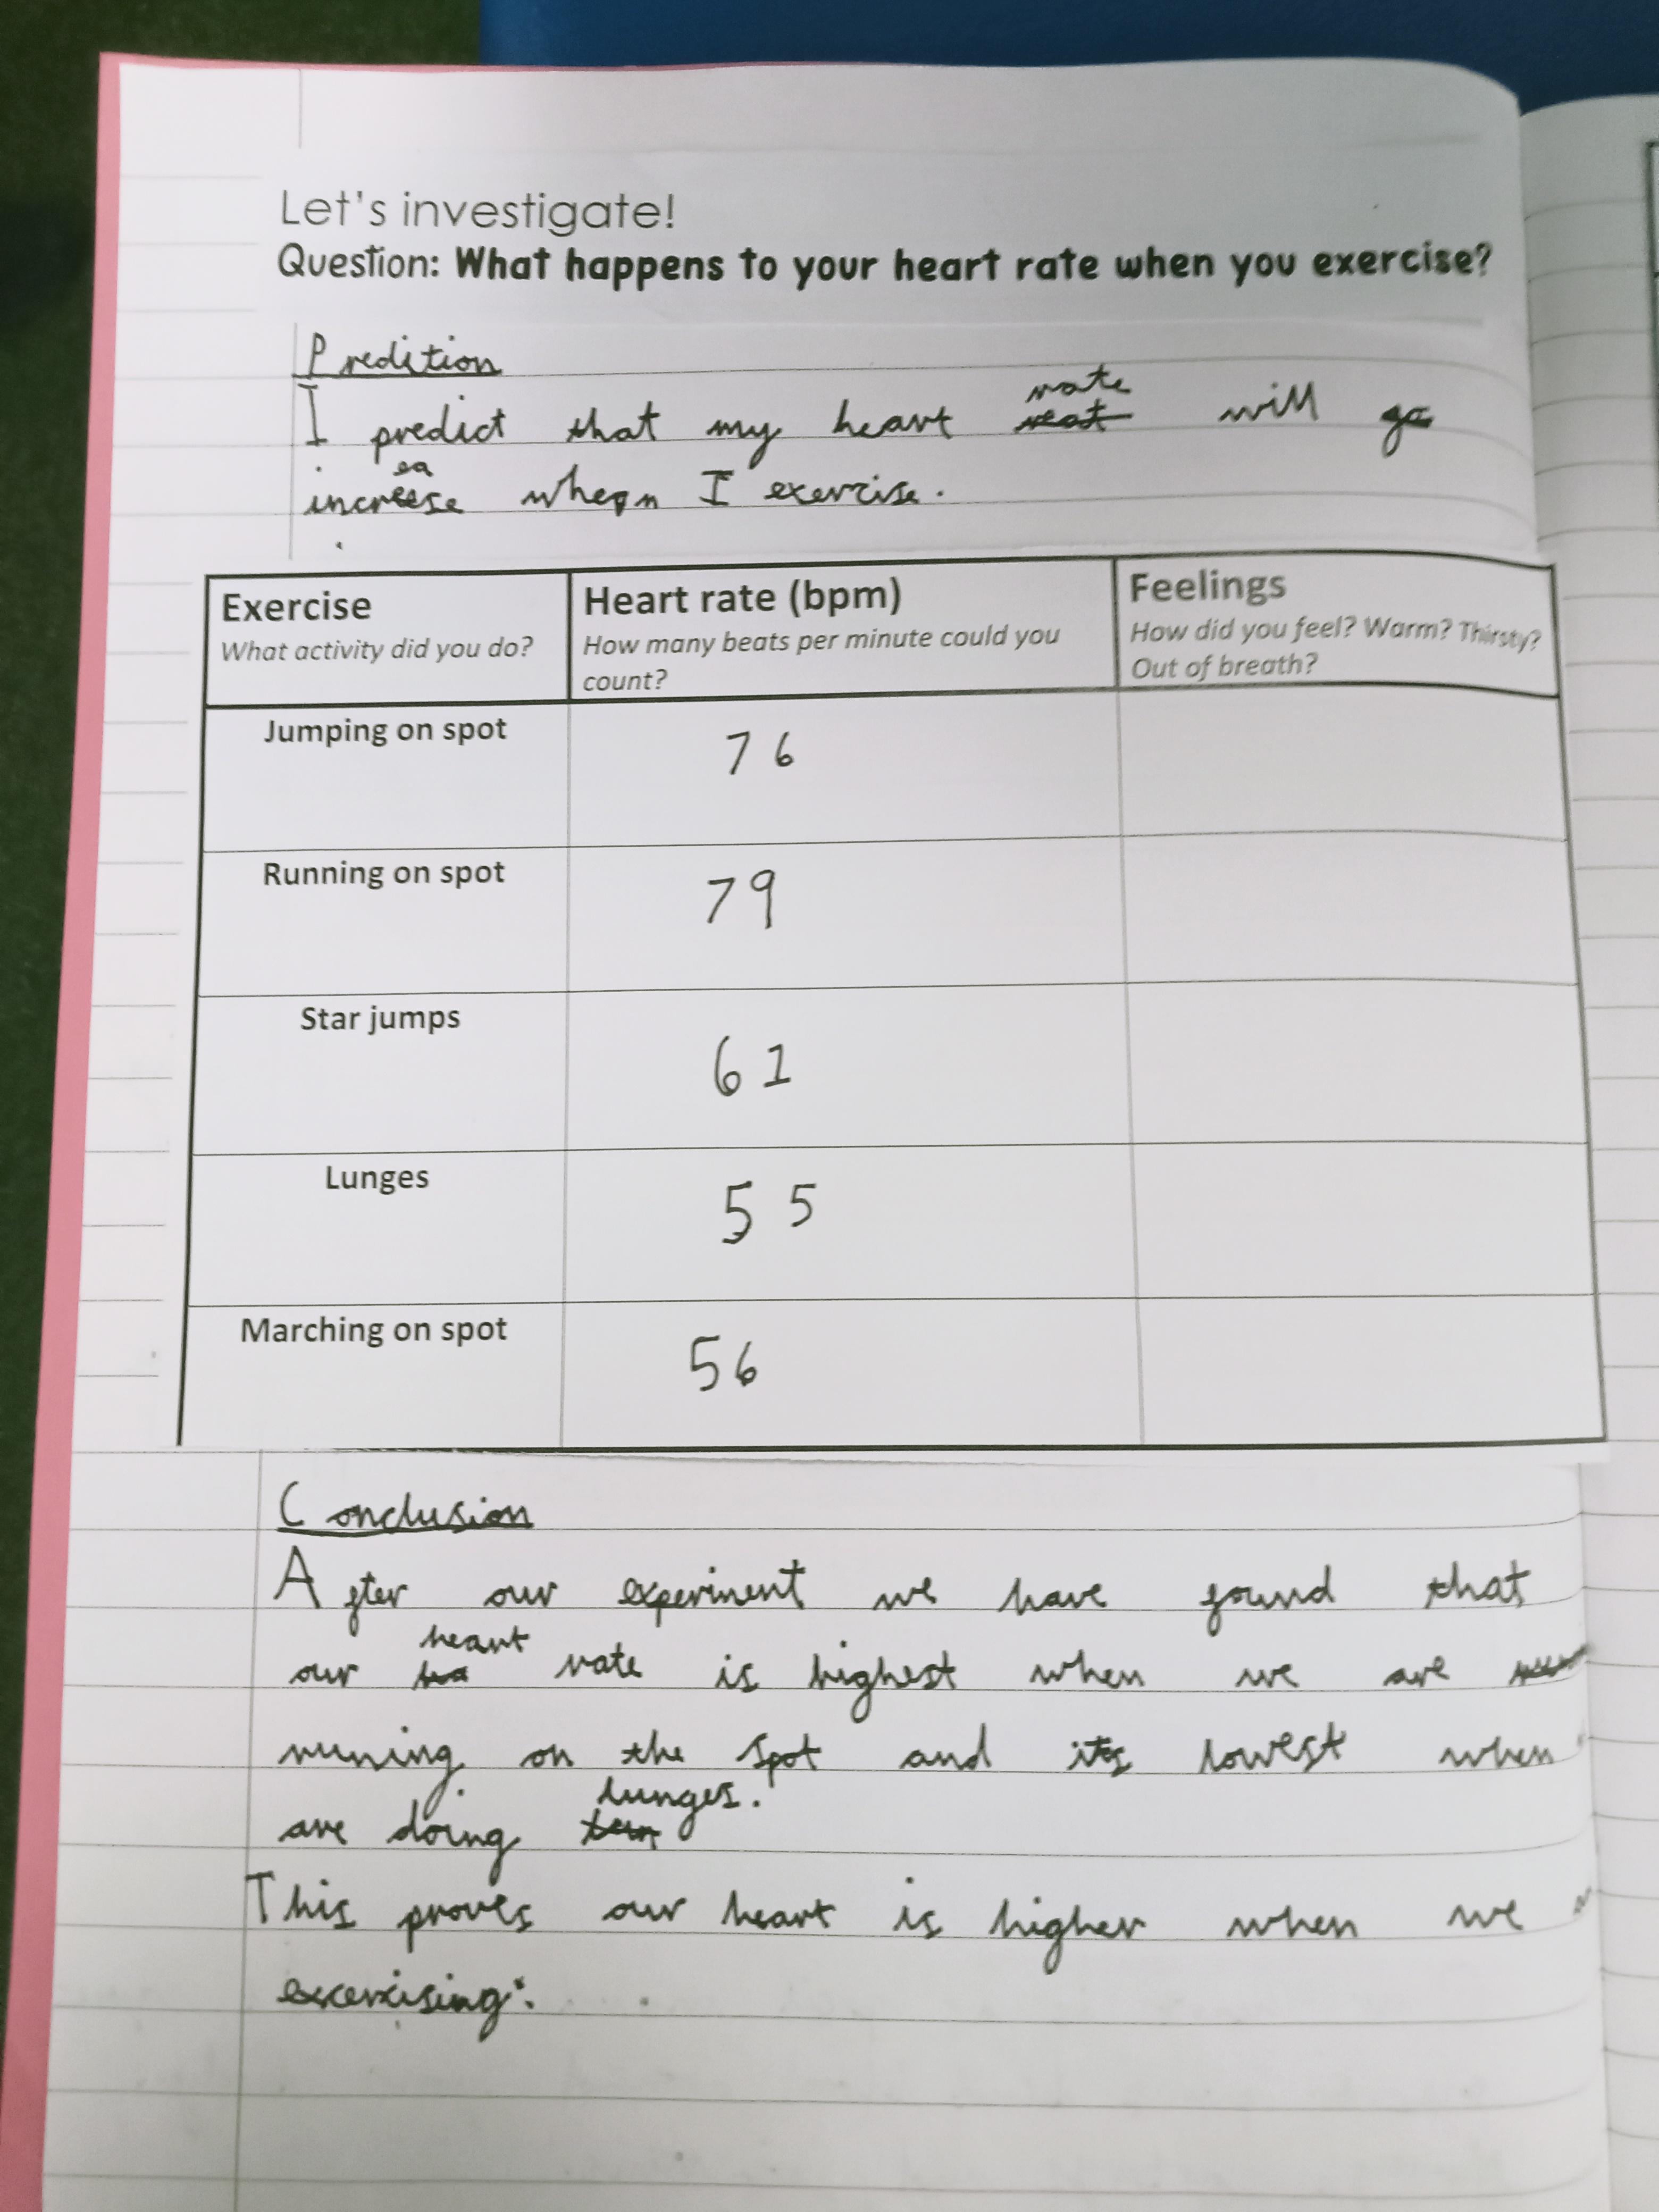 Let's investigate!
Question: What happens to your heart rate when you exercise?
Predition
rate
I predict that my heart reat will go
ea
increese when I exercise.
Exercise
What activity did you do?
Heart rate (bpm)
How many beats per minute could you
count?
Feelings
How did you feel? Warm? Thirsty?
Out of breath?
Jumping on spot
76
Running on spot
79
Star jumps
61
Lunges
55
Marching on spot
56
Conclusion
After our experiment we have found that
heart
our hea rate is highest when we are
runing on the spot and its lowest when
lunges.
are doing
This proves our heart is higher when we
excercising.